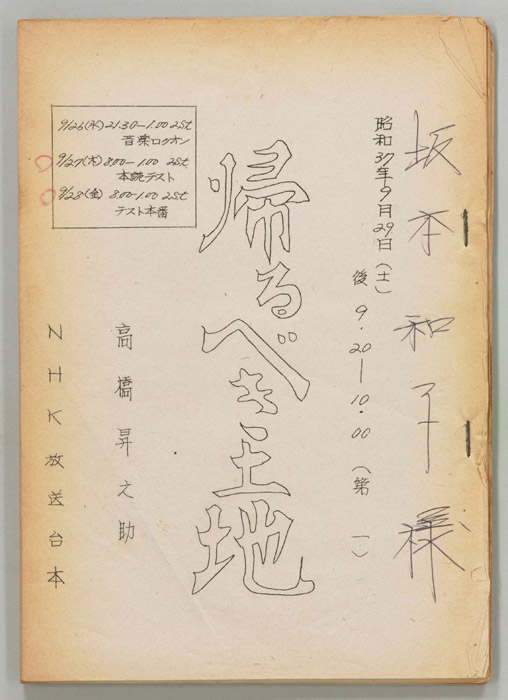 坂本和子様
昭和37年9月29日(土)
後9.20—10.00(第一)
帰るべき土地
9/26(水)21.30—1.00 2St
音楽ロクオン
9/27(木)8.00—1.00 2St
本読テスト
9/28(金)8.00-1.00 2St
テスト本番
高橋昇之助
NHK放送台本